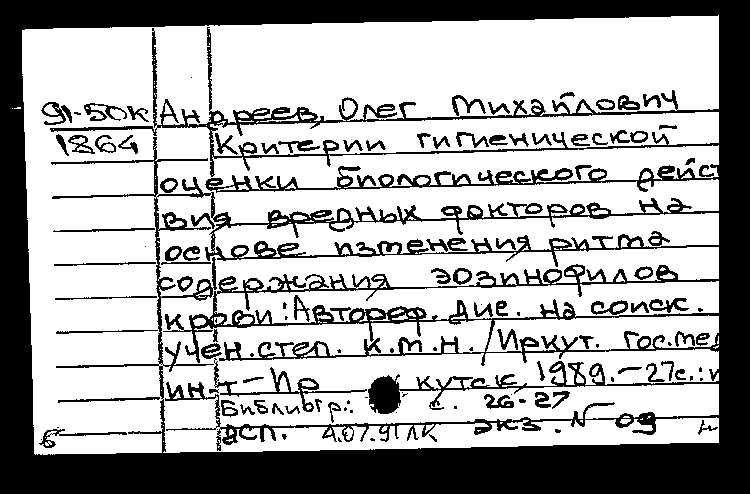 91-50к Андреев, Олег Михайлович
1864 Критерии гигиенической
оценки биологического дейст
вия вредных факторов на
основе изменения ритма
содержания эозинофилов
крови: Автореф. дис. на соиск.
учен. степ. к.м.н. / Иркут. гос. мед
ин-т - Ир кутск, 1989. - 27с.:
Библиогр.: с. 26-27
б ДСП. 4.07.91 ЛК экз. № 09